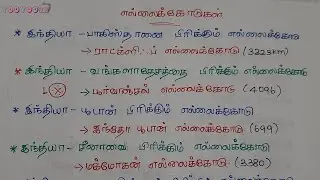 எல்லைக்கோடுகள்
* இந்தியா - பாகிஸ்தானை பிரிக்கும் எல்லைக்கோடு
→ ராட்கிளிஃப் எல்லைக்கோடு (3323km)
* இந்தியா - வங்காளதேசத்தை பிரிக்கும் எல்லைக்கோடு
→ பூர்வாஞ்சல் எல்லைக்கோடு (4096)
* இந்தியா - பூடான் பிரிக்கும் எல்லைக்கோடு
→ இந்தோ பூடான் எல்லைக்கோடு (699)
* இந்தியா - சீனாவை பிரிக்கும் எல்லைக்கோடு
→ மக்மோகன் எல்லைக்கோடு (3380)